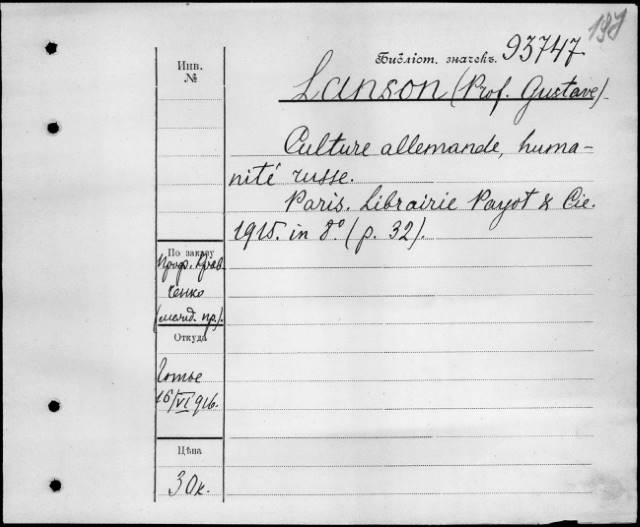 197
Библіот. значекъ. 93747
Lanson (Prof. Gustave).
Culture allemande, huma-
nité russe.
Paris. Librairie Payot & Cie.
1915. in 8º (p. 32).
Инв.
№
По заказу
Проф. Крав-
ченко
пр.).
Откуда
Готье
16/VI 916.
Цѣна
30к.